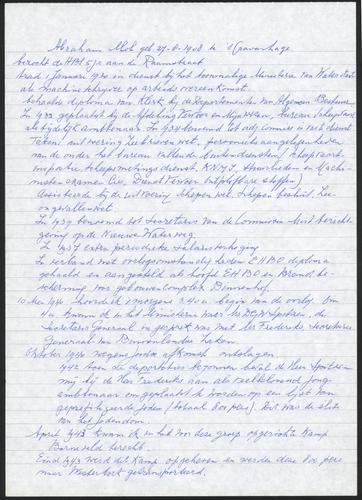 Abraham Mol geb 27-6-1908 te 's Gravenhage
bezocht de HBS 5j a aan de Raamstraat
trad 1 januari 1930 in dienst bij het voormalige Ministerie van Water Staat
als machineschrijver op arbeidsovereenkomst.
behaalde diploma van Klerk bij de Departementen van Algemeen Bestuur
In 1932 geplaatst bij de afdeling Vervoer en Mijnwezen, bureau Scheepvaart
als tijdelijk ambtenaar. In 1934 benoemd tot adj. Commies in vaste dienst
Taken: uitvoering Schepenwet, personele aangelegenheden
van de onder het bureau vallende buitendiensten (Scheepvaart
inspectie, Scheepsmetingsdienst, KNMI, Stuurlieden en Machi-
nisten examen Cie, Dienst Vervoer ontplofbare stoffen)
Assisteerde bij de uitvoering Schepenwet, Schepenbesluit, Zee-
gevallenwet
In 1939 benoemd tot Secretaris van de Commissie Mistbericht-
geving op de Nieuwe Waterweg
In 1937 extra periodieke salarisverhoging
In verband met oorlogsomstandigheden EHBO diploma
gehaald en aangesteld als hoofd EHBO en Brand be-
scherming voor gebouwencomplex Binnenhof.
10 mei 1940 hoorde ik 's morgens 3.40 u begin van de oorlog. Om
4 u kwam ik in het Ministerie waar Ir DGW Spitzen, de
Secretaris Generaal in gesprek was met Mr Frederiks, Secretaris
Generaal van Binnenlandse Zaken.
Oktober 1940 wegens Joodse afkomst ontslagen.
1942 toen de deportaties begonnen beval de Heer Spitzen
mij bij de Heer Frederiks aan als veelbelovend jong
ambtenaar om geplaatst te worden op een lijst van
geprivilegeerde Joden (totaal 600 pers). Dit was de elite
van het Jodendom.
April 1943 kwam ik in het voor deze groep opgerichte Kamp
Barneveld terecht.
Eind 1943 werd dit Kamp opgeheven en werden deze 600 perso
nen naar Westerbork getransporteerd.